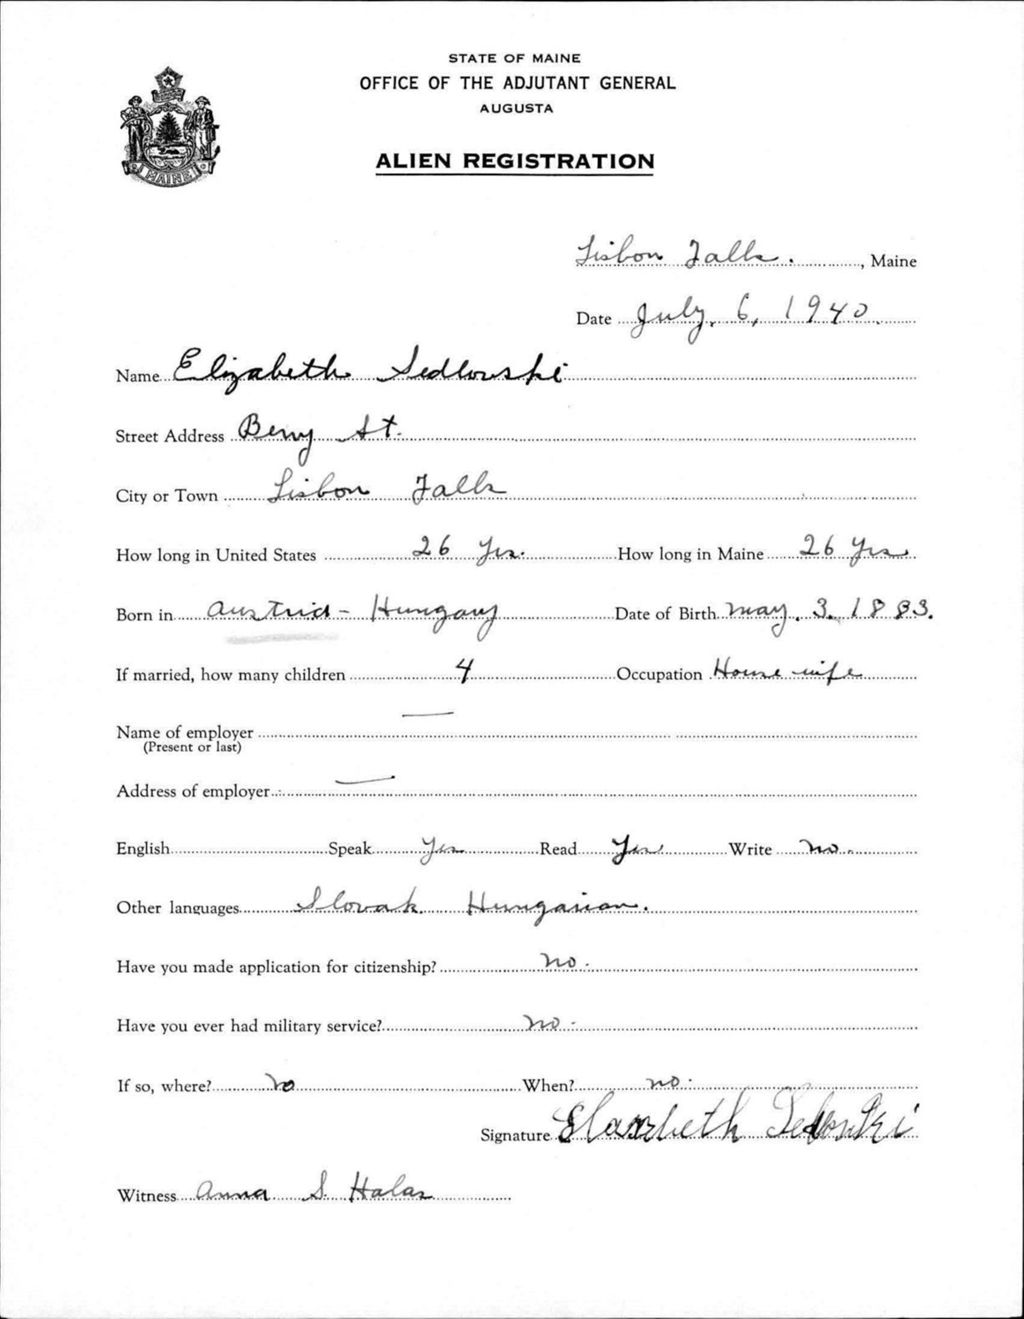 STATE OF MAINE
OFFICE OF THE ADJUTANT GENERAL
AUGUSTA
ALIEN REGISTRATION
MAINE
Lisbon Falls. , Maine
Date July, 6, 1940.
Name Elizabeth Sedlouski
Street Address Berry St.
City or Town Lisbon Falls
How long in United States 26 Yrs. How long in Maine 26 Yrs.
Born in Austria - Hungary Date of Birth May. 3. 1883.
If married, how many children 4 Occupation House wife
Name of employer —
(Present or last)
Address of employer —
English Speak Yes Read Yes Write no.
Other languages Slovak. Hungarian.
Have you made application for citizenship? no.
Have you ever had military service? no -
If so, where? no When? no.
Signature
Witness Anna S. Halas